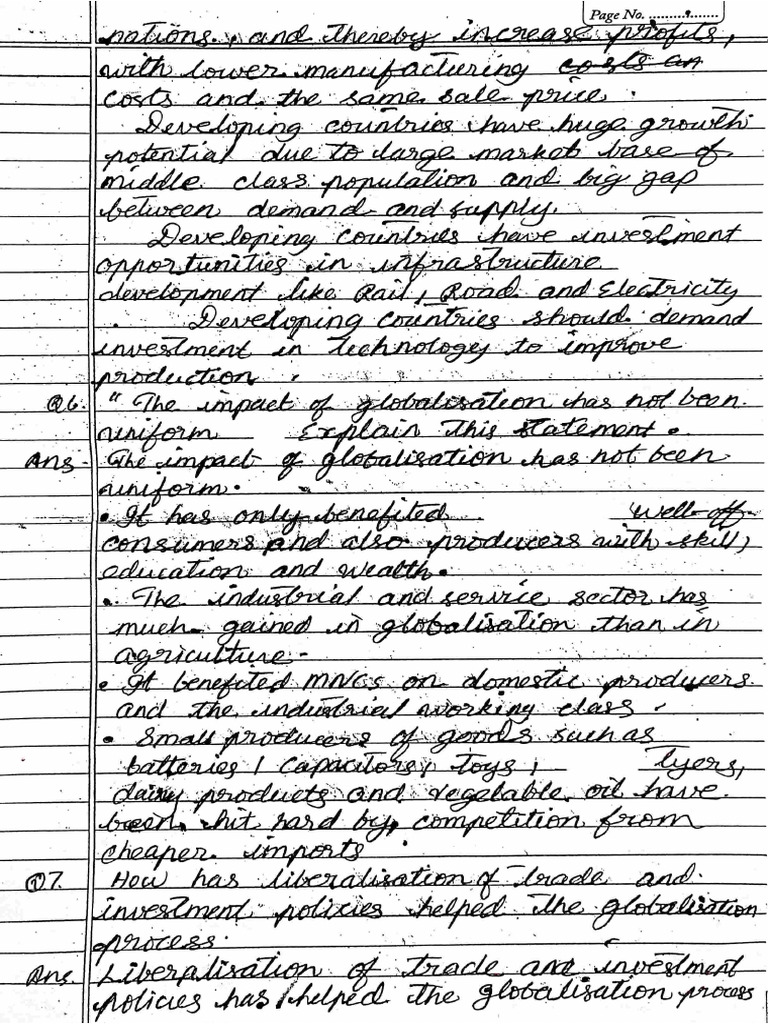 Page No. ..................
nations, and thereby increase profits,
with lower manufacturing costs an
costs and the same sale price.
Developing countries have huge growth
potential due to large market base of
middle class population and big gap
between demand and supply.
Developing countries have investment
opportunities in infrastructure
development like Rail, Road and Electricity
Developing countries should demand
investment in technology to improve
production.
Q6. " The impact of globalisation has not been
uniform Explain this statement.
Ans - The impact of globalisation has not been
uniform.
• It has only benefited well-off
consumers and also producers with skill,
education and wealth.
• The industrial and service sector has
much gained in globalisation than in
agriculture -
• It benefited MNCs on domestic producers
and the industrial working class.
• Small producers of goods such as
batteries, capacitors, toys, tyers,
dairy products and vegetable oil have
been hit hard by competition from
cheaper imports.
Q7. How has liberalisation of trade and
investment policies helped the globalisation
process.
Ans. Liberalisation of trade and investment
policies has helped the globalisation process